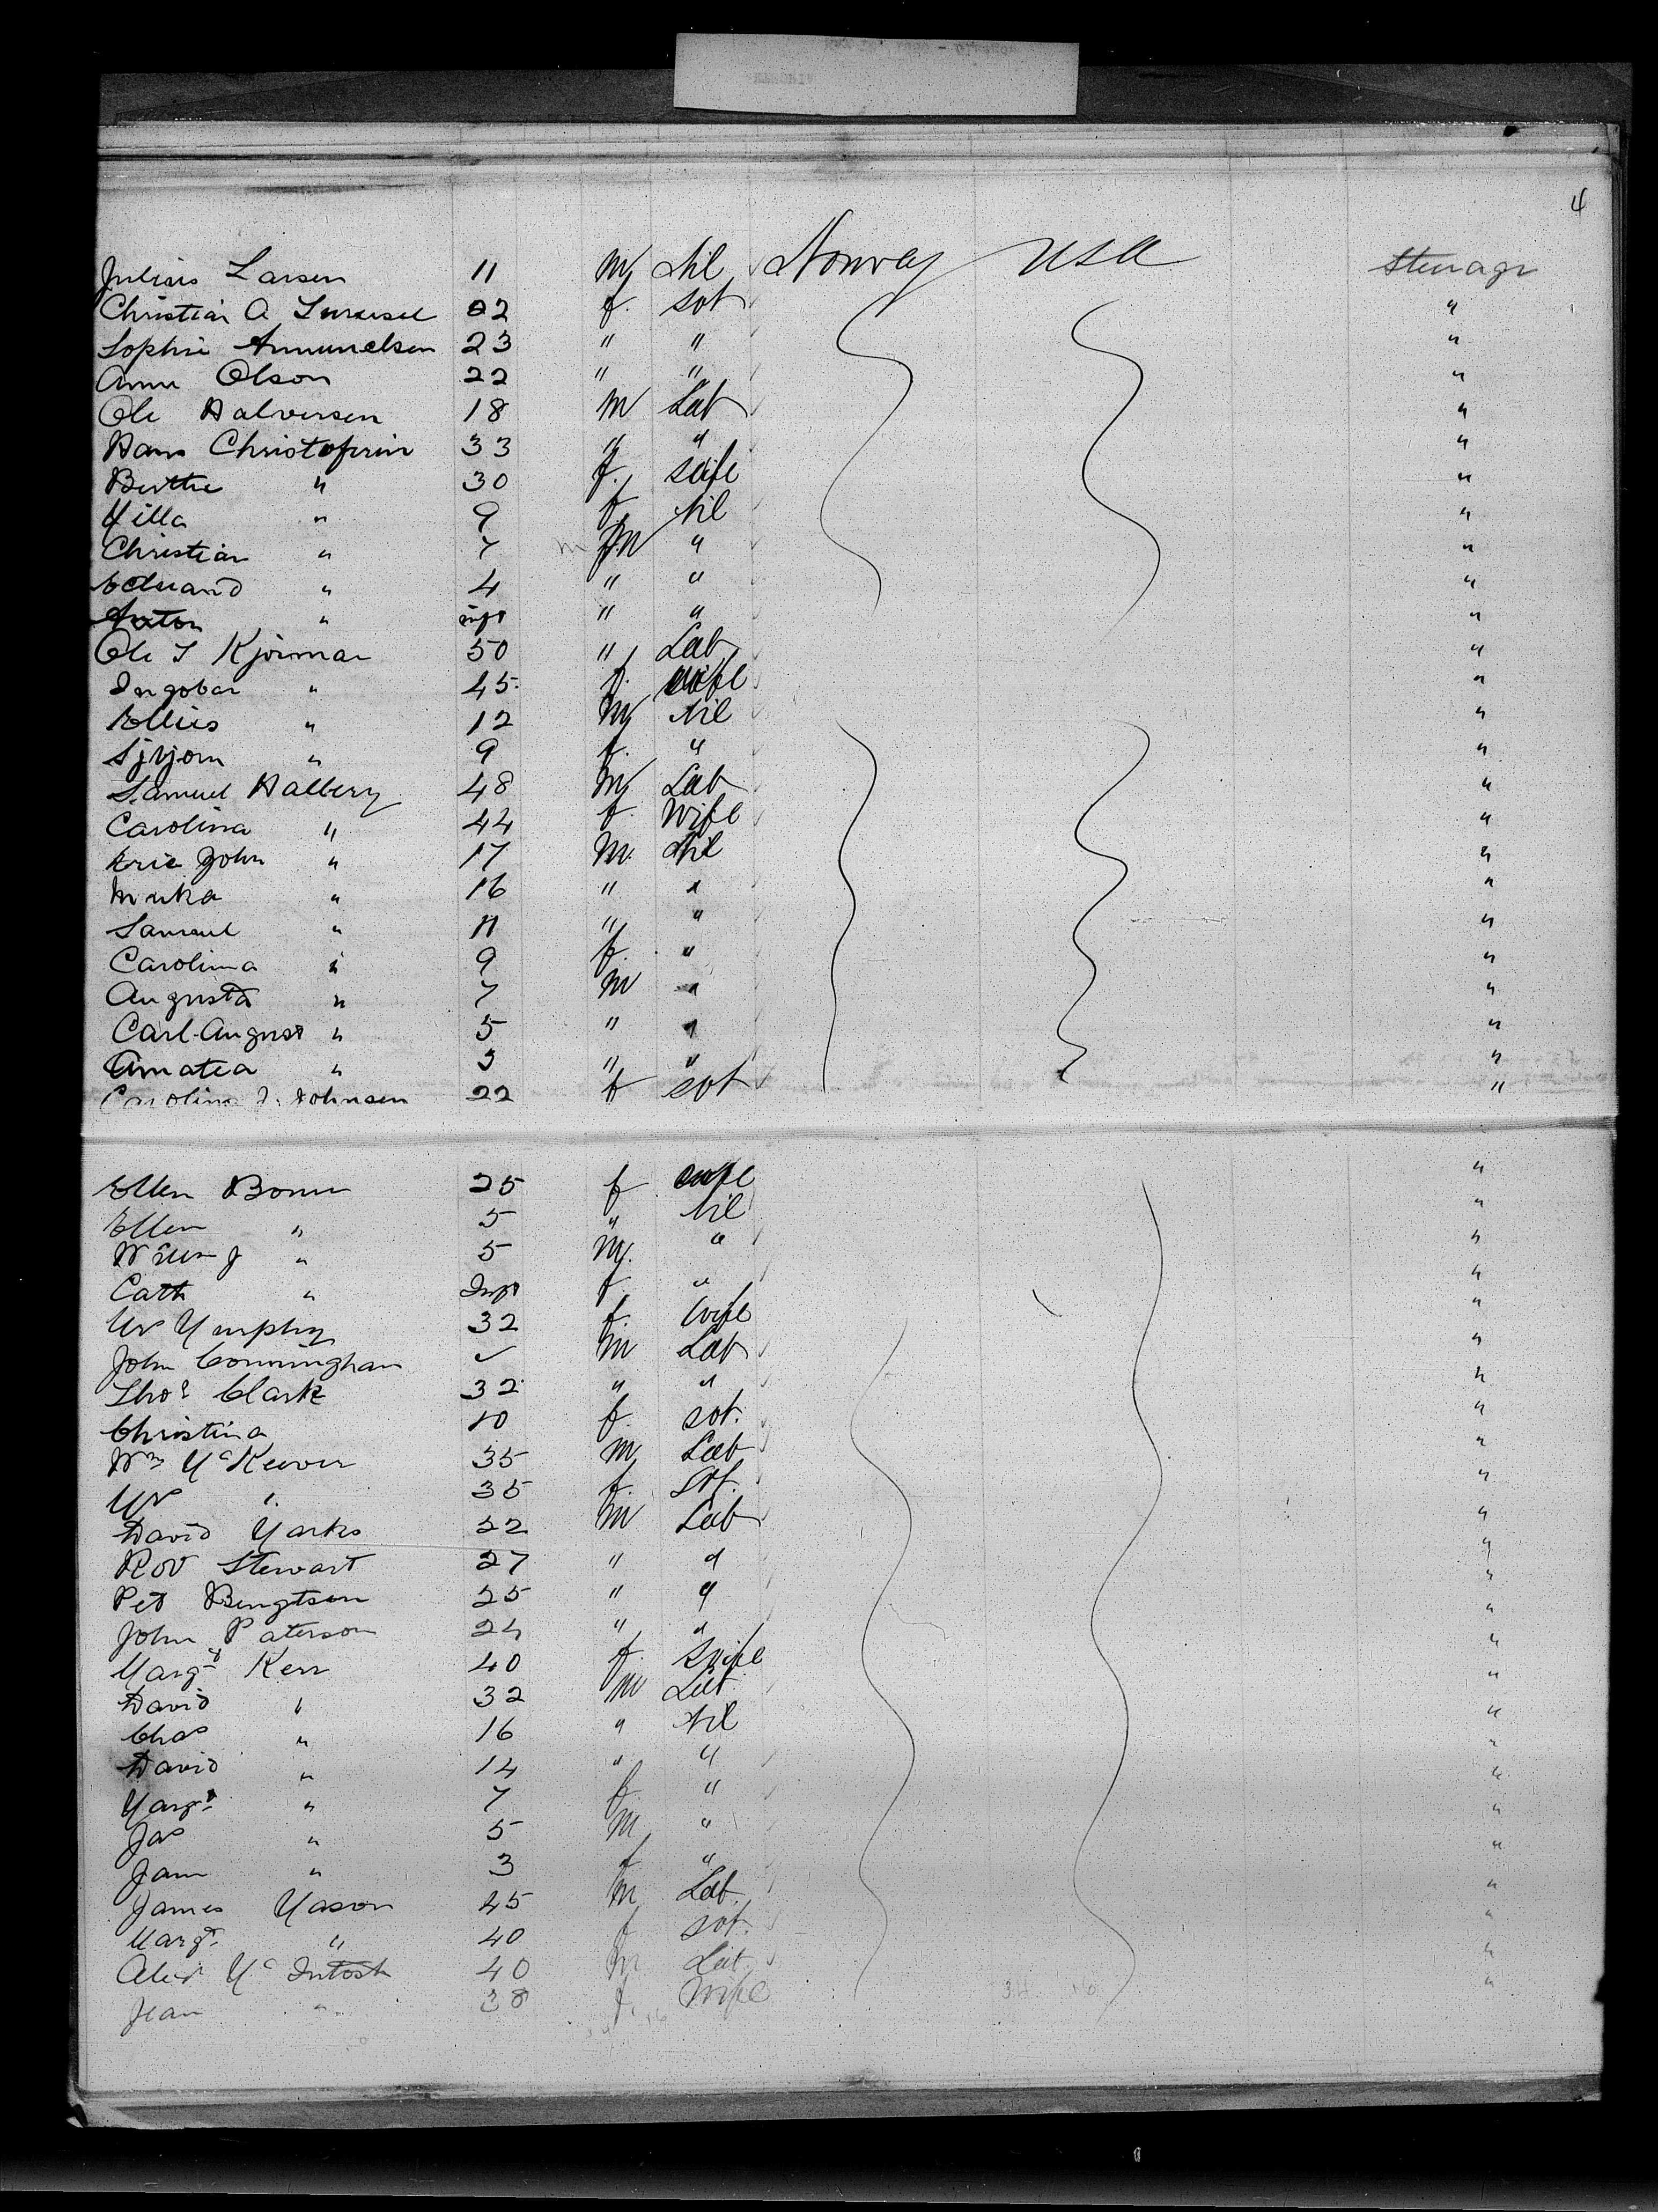 4
Julius Larsen 11 M Nil Norway USA Steerage
Christian A 22 f. spt "
Sophie Amundsen 23 " " "
Anne Olson 22 " " "
Ole Halversen 18 M Lab "
Hans Christofersen 33 " " "
Berthe " 30 f. wife "
" 9 f Nil "
Christian " 7 m M " "
Edward " 4 " " "
Anton " inft " " "
Ole 50 " Lab "
Ingobar " 45 f. wife "
" 12 M Nil "
" 9 f. " "
Samuel Halberg 48 M Lab "
Carolina " 44 f. Wife "
Eric John " 17 M. Nil "
" 16 " " "
Samuel " 11 " " "
Carolina " 9 f. " "
Augusta " 7 M " "
Carl August " 5 " " "
Amatea " 3 " " "
Carolina J. Johnsen 22 f spt "
Ellen 25 f wife "
Ellen " 5 " Nil "
J " 5 M. " "
Cath " Inft f. " "
Mrs Murphy 32 f. Wife "
John Conningham ✓ M Lab "
Thos Clark 32 " " "
Christina 10 f. spt. "
Wm McKeever 35 M Lab "
Mrs " 35 f. spt. "
David Marks 22 M Lab "
Rob Stewart 27 " " "
Pet Bengtson 25 " " "
John Paterson 24 " " "
Margt Kerr 40 f. wife "
David " 32 M Lab "
Chas " 16 " Nil "
David " 14 " " "
Margt " 7 f. " "
Jas " 5 M " "
" 3 f " "
James Mason 45 M Lab. "
Margt " 40 f spt. "
Alexr McIntosh 40 M Lab. "
Jean " 38 f. Wife "